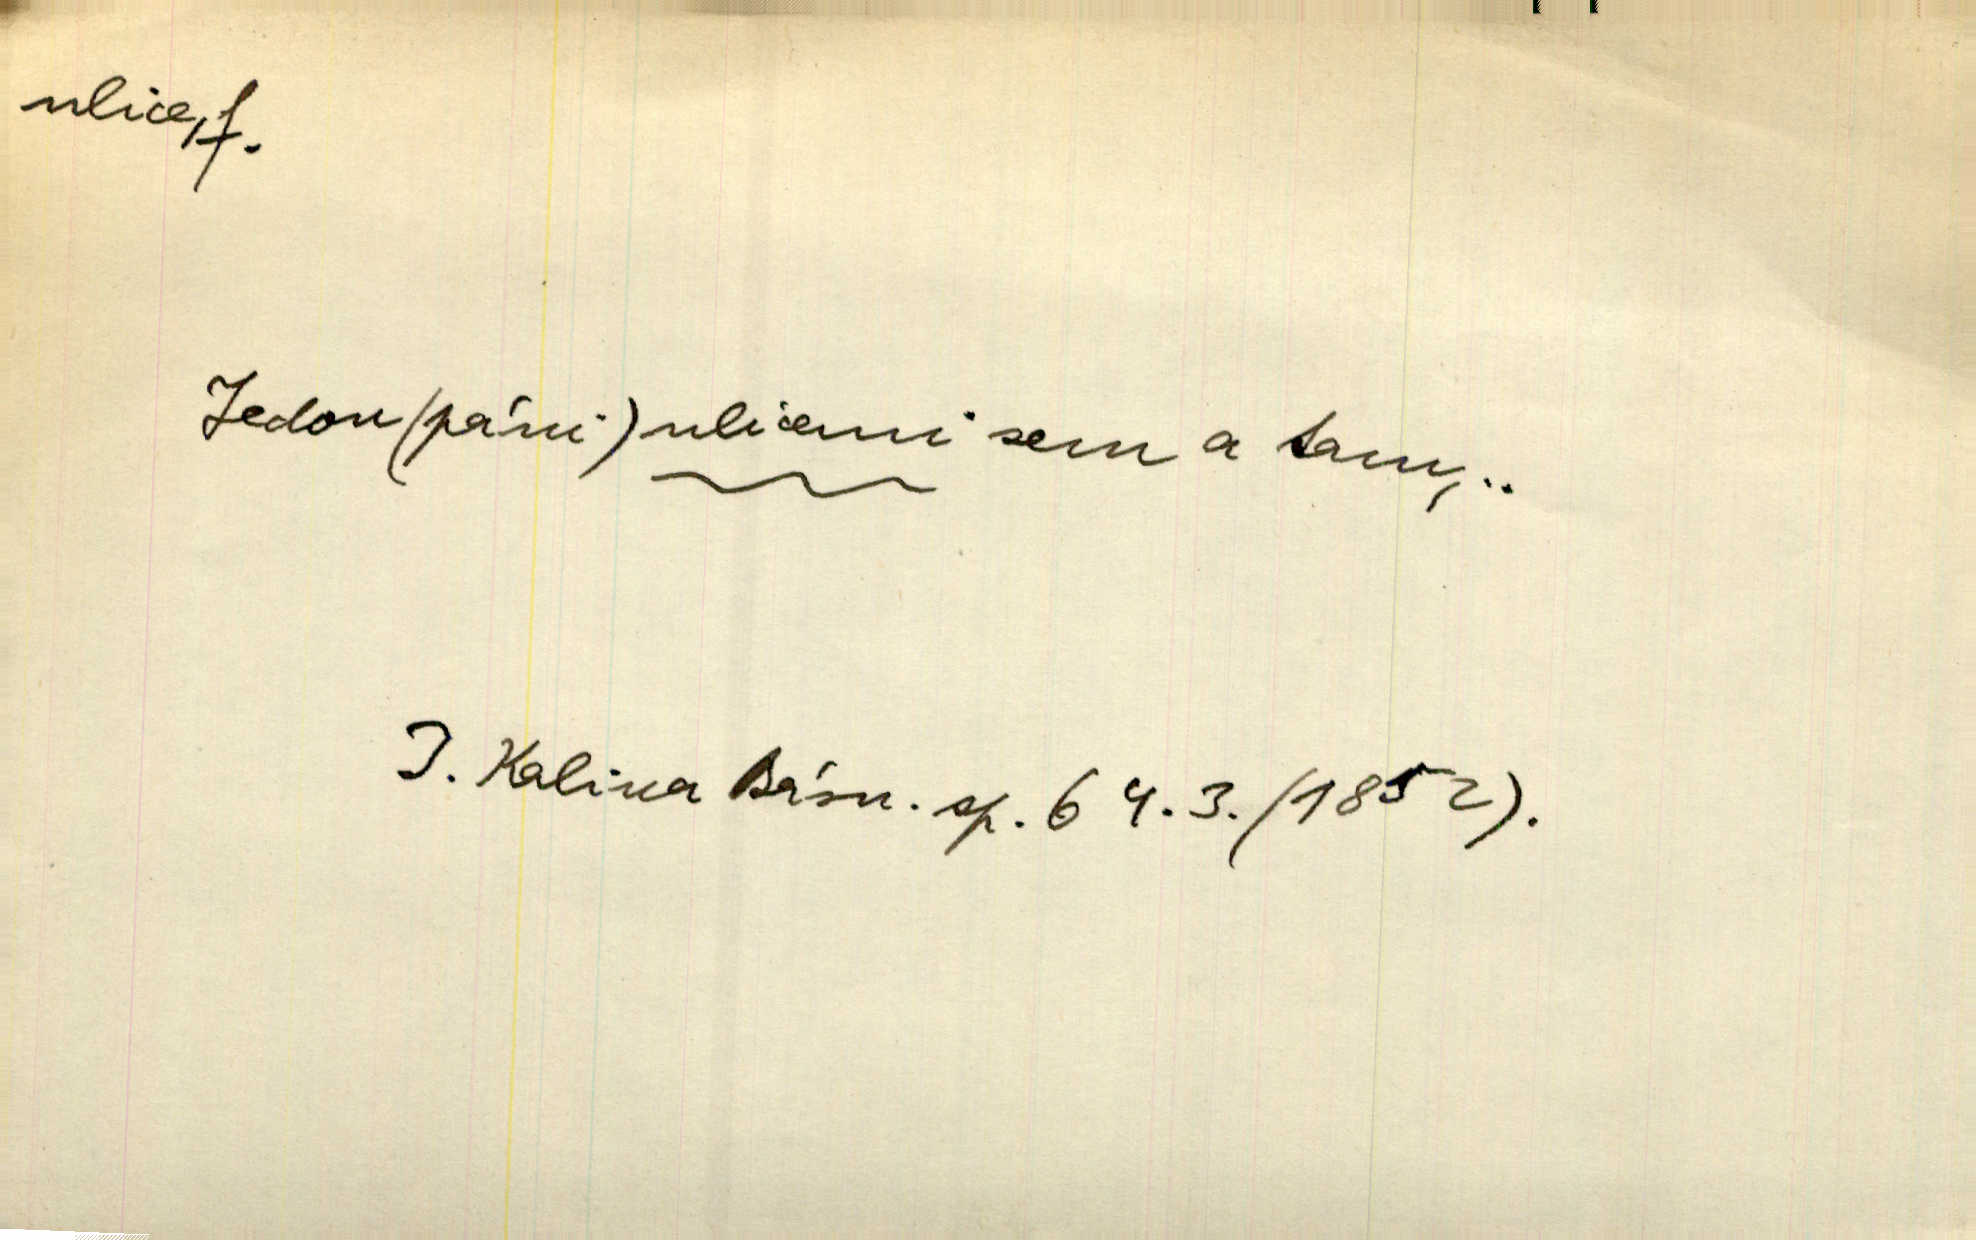 ulice, f.
Jedou (páni) ulicemi sem a tam, ..
J. Kalina Básn. sp. 64.3. (1852).